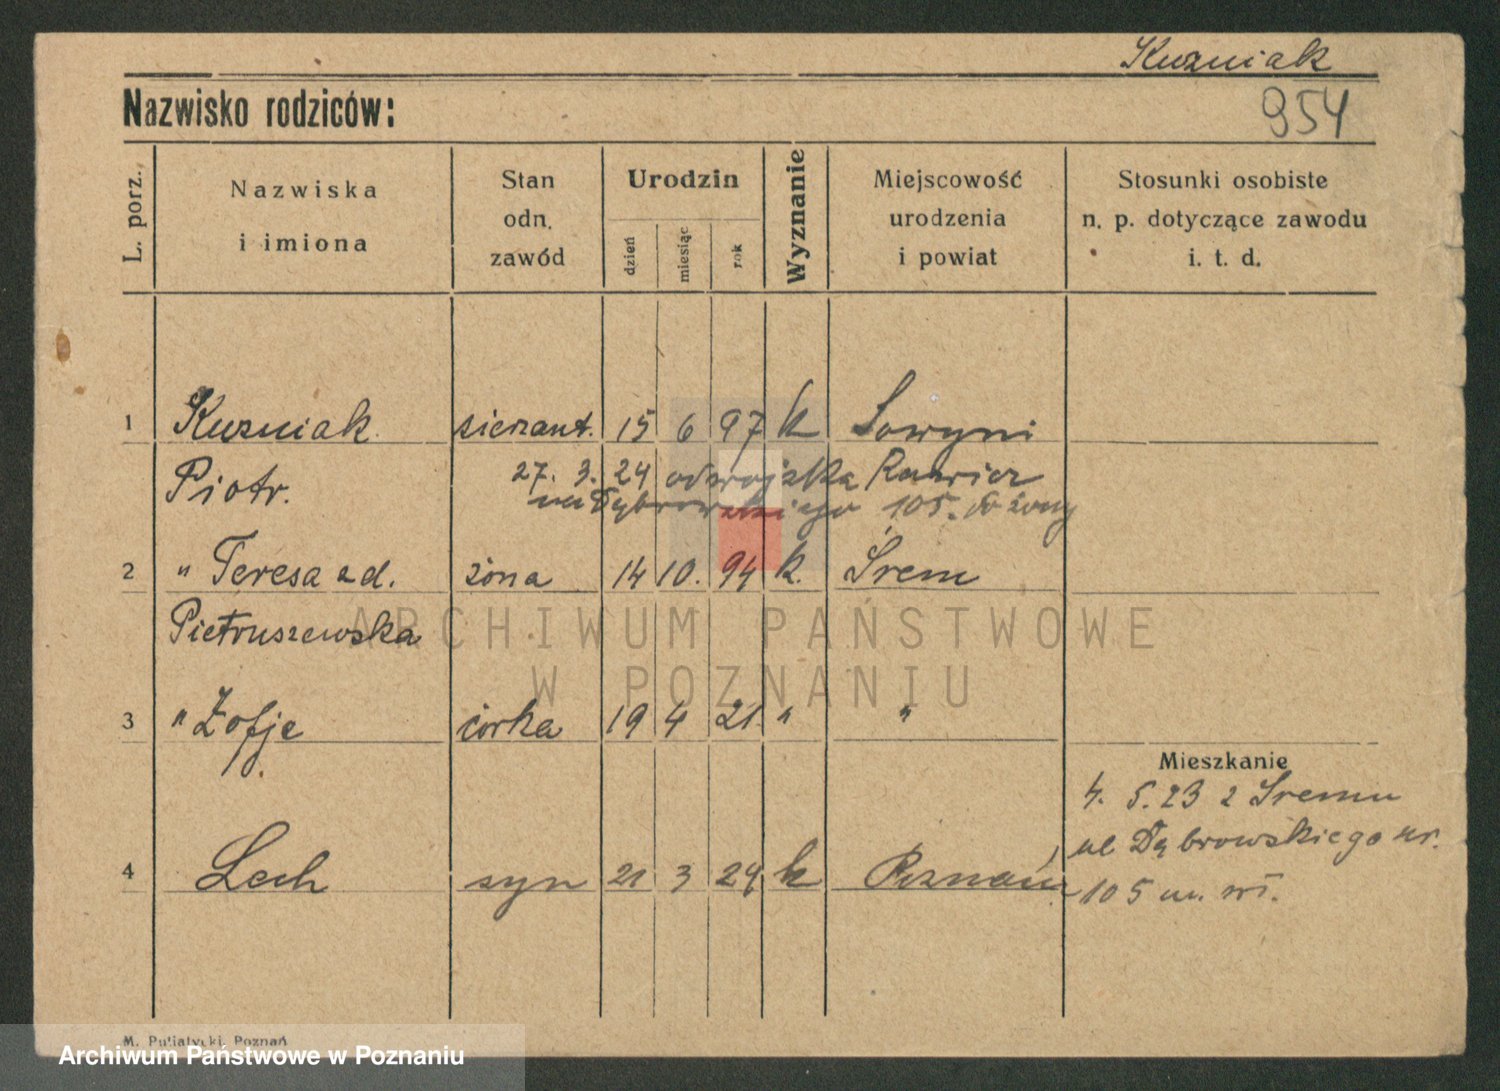 Kuzniak
Nazwisko rodziców:
954
L. porz.
Nazwiska
i imiona
Stan
odn.
zawód
Urodzin
dzień
miesiąc
rok
Wyznanie
Miejscowość
urodzenia
i powiat
Stosunki osobiste
n. p. dotyczące zawodu
i. t. d.
1 Kuzniak sierzant. 15 6 97 k Lowyni
Piotr. 27. 3. 24 od wojska Rawicz
na Dąbrowskiego 105. do żony
2 " Teresa z d. żona 14 10. 94 k. Śrem
Pietruszewska
ARCHIWUM PAŃSTWOWE
W POZNANIU
3 " Zofje córka 19 4 21. " "
Mieszkanie
4. 5. 23 z Śremu
ul Dąbrowskiego nr.
4 Lech syn 21 3 24 k Poznań
105 m. wł.
M. Putiatycki, Poznań
Archiwum Państwowe w Poznaniu